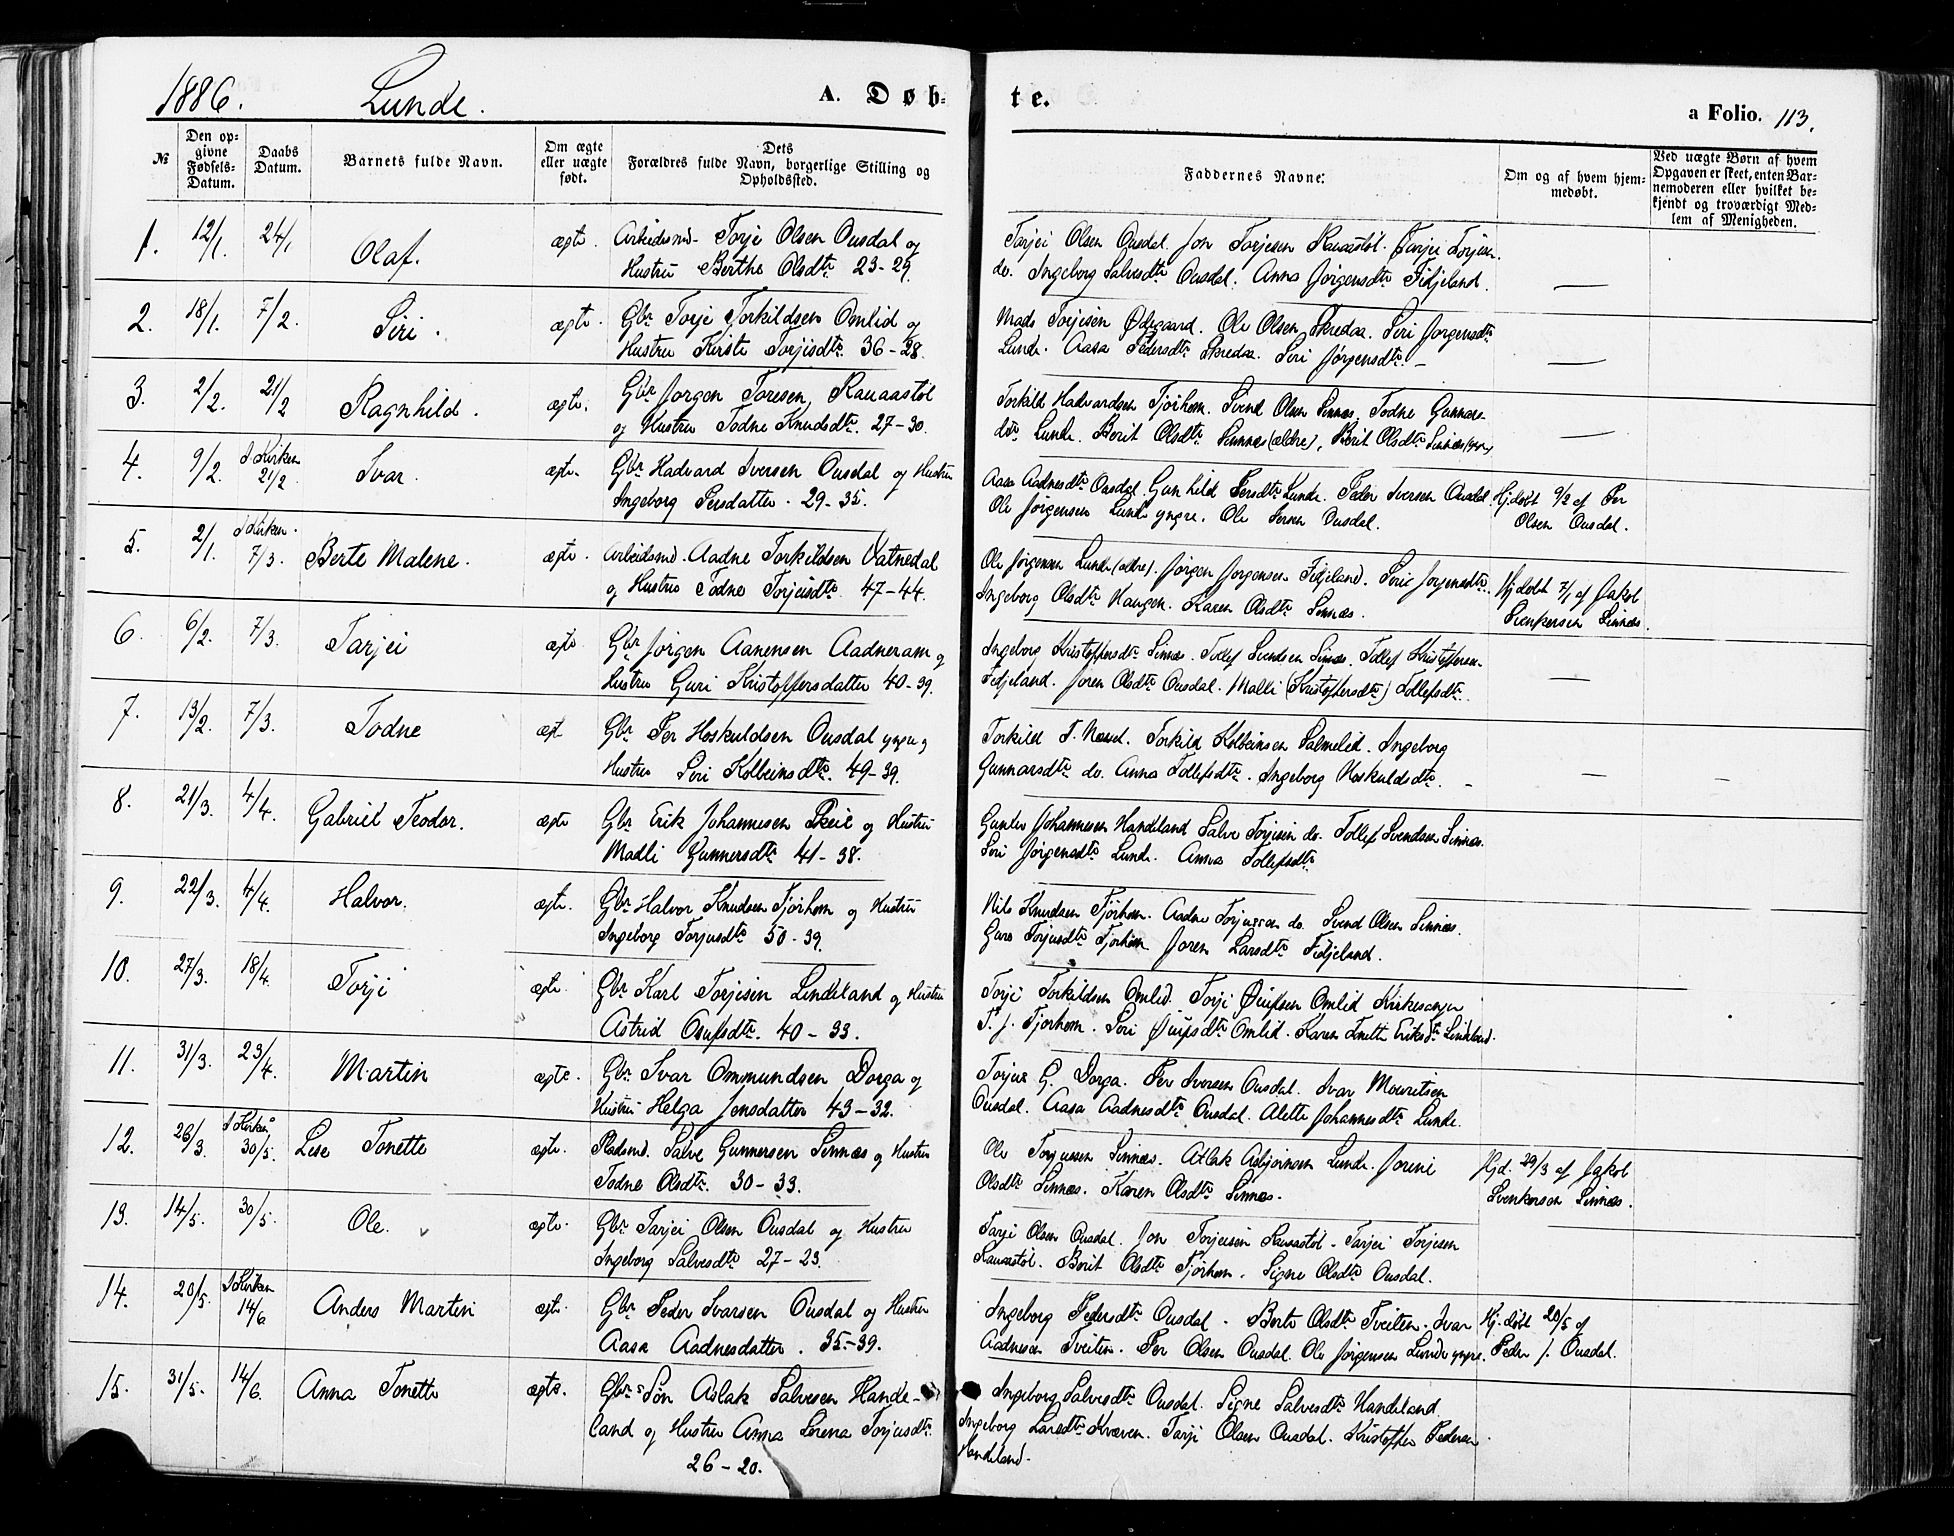 1886. Lunde. A. Døb- te. a Folio. 113.
№ Den opgivne Fødsels-Datum. Daabs Datum. Barnets fulde Navn. Om ægte eller uægte født. Dets Forældres fulde Navn, borgerlige Stilling og Opholdssted. Faddernes Navne. Om og af hvem hjemmedøbt. Ved uægte Børn af hvem Opgaven er skeet, enten Barnemoderen eller hvilket bekjendt og troværdigt Medlem af Menigheden.
1. 12/1. 24/1 Olaf. ægte. Arbeidsmd. Torje Olsen Ousdal og
Hustru Berthe Olsdtr 23-29.
Tarjei Olsen Ousdal. Jon Torjesen Rauaastøl. Tarjei Torjesen
do. Ingeborg Salvesdtr Ousdal. Anna Jørgensdtr Fidjeland. —
2. 18/1. 7/2. Siri. ægte. Gbr Torje Torkildsen Omlid og
Hustru Kirsti Torjisdtr. 36-28.
Mads Torjesen Ødegaard. Ole Olsen Skredaa. Siri Jørgensdtr
Lunde. Aasa Pedersdtr Skredaa. Siri Jørgensdtr. — —
3. 2/2. 21/2 Ragnhild. ægte. Gbr Jørgen Toresen Rauaastøl
og Hustru Todne Knudsdtr. 27-30.
Torkild Hadvardsen Tjørhom. Svend Olsen Sinnæs. Todne Gunnars-
dtr Lunde. Berit Olsdtr Sinnæs (ældre), Berit Olsdtr Sinnæs (yngre) —
4. 9/2. I Kirken 21/2 Ivar. ægte. Gbr Hadvard Iversen Ousdal og Hustru
Ingeborg Persdatter. 29-35.
Aasa Aadnesdtr Ousdal. Gunhild Persdtr Lunde. Peder Iversen Ousdal.
Ole Jørgensen Lunde yngre. Ole Iversen Ousdal.
Hj.døbt 9/2 af Per
Olsen Ousdal.
5. 2/1. I Kirken. 7/3. Berte Malene. ægte. Arbeidsmd. Aadne Torkildsen Vatnedal
og Hustru Todne Torjeisdtr. 47-44.
Ole Jørgensen Lunde (ældre). Jørgen Jørgensen Fidjeland. Serine Jørgensdtr.
Ingeborg Olsdtr Haugen. Karen Olsdtr Sinnæs.
Hj.døbt 7/1 af Jakob
Svenkersen Sinnæs.
6. 6/2. 7/3. Tarjei ægte Gbr Jørgen Aanensen Aadneram og
Hustru Guri Kristoffersdatter 40-39.
Ingeborg Kristoffersdtr Sinnæs. Tollef Svendsen Sinnæs. Tollef Kristoffersen
Fidjeland. Joren Olsdtr Ousdal. Malli (Kristoffersdtr) Tollefsdtr. —
7. 13/2. 7/3. Todne ægt Gbr Per Hoskuldsen Ousdal yngre og
Hustru Siri Kolbeinsdtr. 49-39.
Torkild T. Næsset. Torkild Kolbeinsen Salmelid. Ingeborg
Gunnarsdtr do. Anna Tollefsdtr. Ingeborg Hoskuldsdtr. — —
8. 21/3. 4/4. Gabriel Teodor. ægte Gbr Erik Johannesen Skeie og Hustru
Madli Gunnersdtr 41-38.
Gunder Johannesen Handeland Salve Torjesen do. Tollef Svendsen Sinnæs.
Siri Jørgensdtr Lunde. Anna Tollefsdtr
9. 22/3. 4/4. Halvor. ægte. Gbr Halvor Knudsen Tjørhom og Hustru
Ingeborg Torjusdtr 50-39.
Nils Knudsen Tjørhom. Aadne Torjussen do. Svend Olsen Sinnæs.
Guro Torjusdtr Tjørhom Joren Larsdtr Fidjeland.
10. 27/3. 18/4. Torji ægte. Gbr Karl Torjesen Lindeland og Hustru
Astrid Osufsdtr. 40-33.
Torje Torkildsen Omlid. Torje Øiufsen Omlid Kirkesanger
T. J. Tjørhom. Siri Øiufsdtr Omlid. Karen Tonette Eriksdtr Lindeland.
11. 31/3. 23/4. Martin ægte. Gbr. Ivar Ommundsen Dorga og
Hustru Helga Jensdatter 43-32.
Torjus G. Dorga. Per Iversen Ousdal. Ivar Mouritsen
Ousdal. Aasa Aadnesdtr Ousdal. Alette Johannesdtr Lunde.
12. 26/3. I Kirken 30/5. Lise Tonette ægte. Pladsmd. Salve Gunnersen Sinnæs og Hustru
Todne Olsdtr. 30-33.
Ole Torjussen Sinnæs. Aslak Asbjørnsen Lunde. Jorine
Olsdtr Sinnæs. Karen Olsdtr Sinnæs.
Hjd. 29/3 af Jakob
Svenkersen Sinnæs.
13. 14/5. 30/5. Ole. ægte. Gbr Tarjei Olsen Ousdal og Hustru
Ingeborg Salvesdtr 27-23.
Tarje Olsen Ousdal. Jon Torjeisen Rauaastøl - Tarjei Torjesen
Rauaastøl. Berit Olsdtr Tjørhom. Signe Olsdtr Ousdal.
14. 20/5. I Kirken 14/6 Anders Martin ægte. Gbr Peder Ivarsen Ousdal og Hustru
Aasa Aadnesdatter. 35-39.
Ingeborg Pedersdtr Ousdal. Berte Olsdtr Tveiten. Ivar
Aadnesen Tveiten. Per Olsen Ousdal. Ole Jørgensen Lunde yngre.
Hj.døbt 20/5 af
Peder J. Ousdal.
15. 31/5. 14/6. Anna Tonette ægte. Gbrs Søn Aslak Salvesen Hande-
land og Hustru Anna Serena Torjusdtr.
26-20.
Ingeborg Salvesdtr Ousdal. Signe Salvesdtr Handeland
Ingeborg Larsdtr Kvæven. Tarje Olsen Ousdal. Kristoffer Pedersen
Handeland.